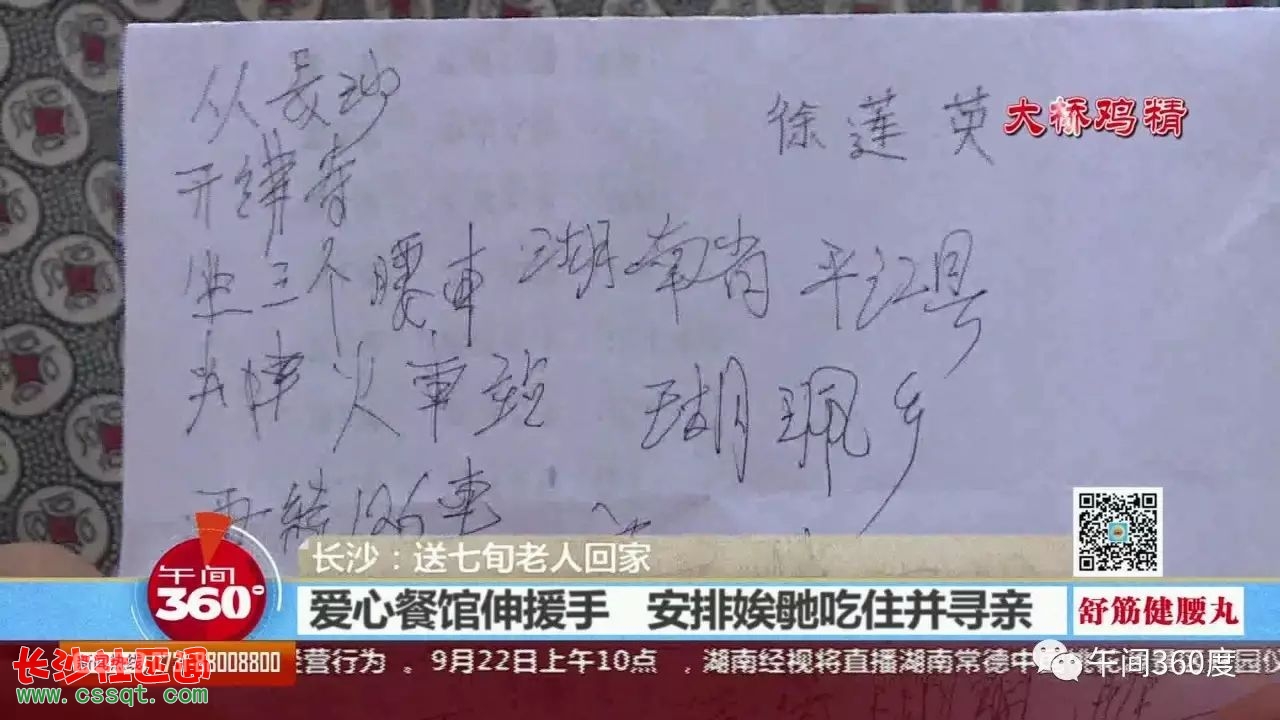 从長沙
徐莲英
大桥鸡精
开
坐三个 車
湖南省
平江县
火車站
瑚珮乡
126車
长沙：送七旬老人回家
午间
360°
爱心餐馆伸援手 安排娭毑吃住并寻亲
舒筋健腰丸
88008800
经营行为 。9月22日上午10点 ，湖南经视将直播湖南常德中
午间360度
长沙社区通
www.cssqt.com